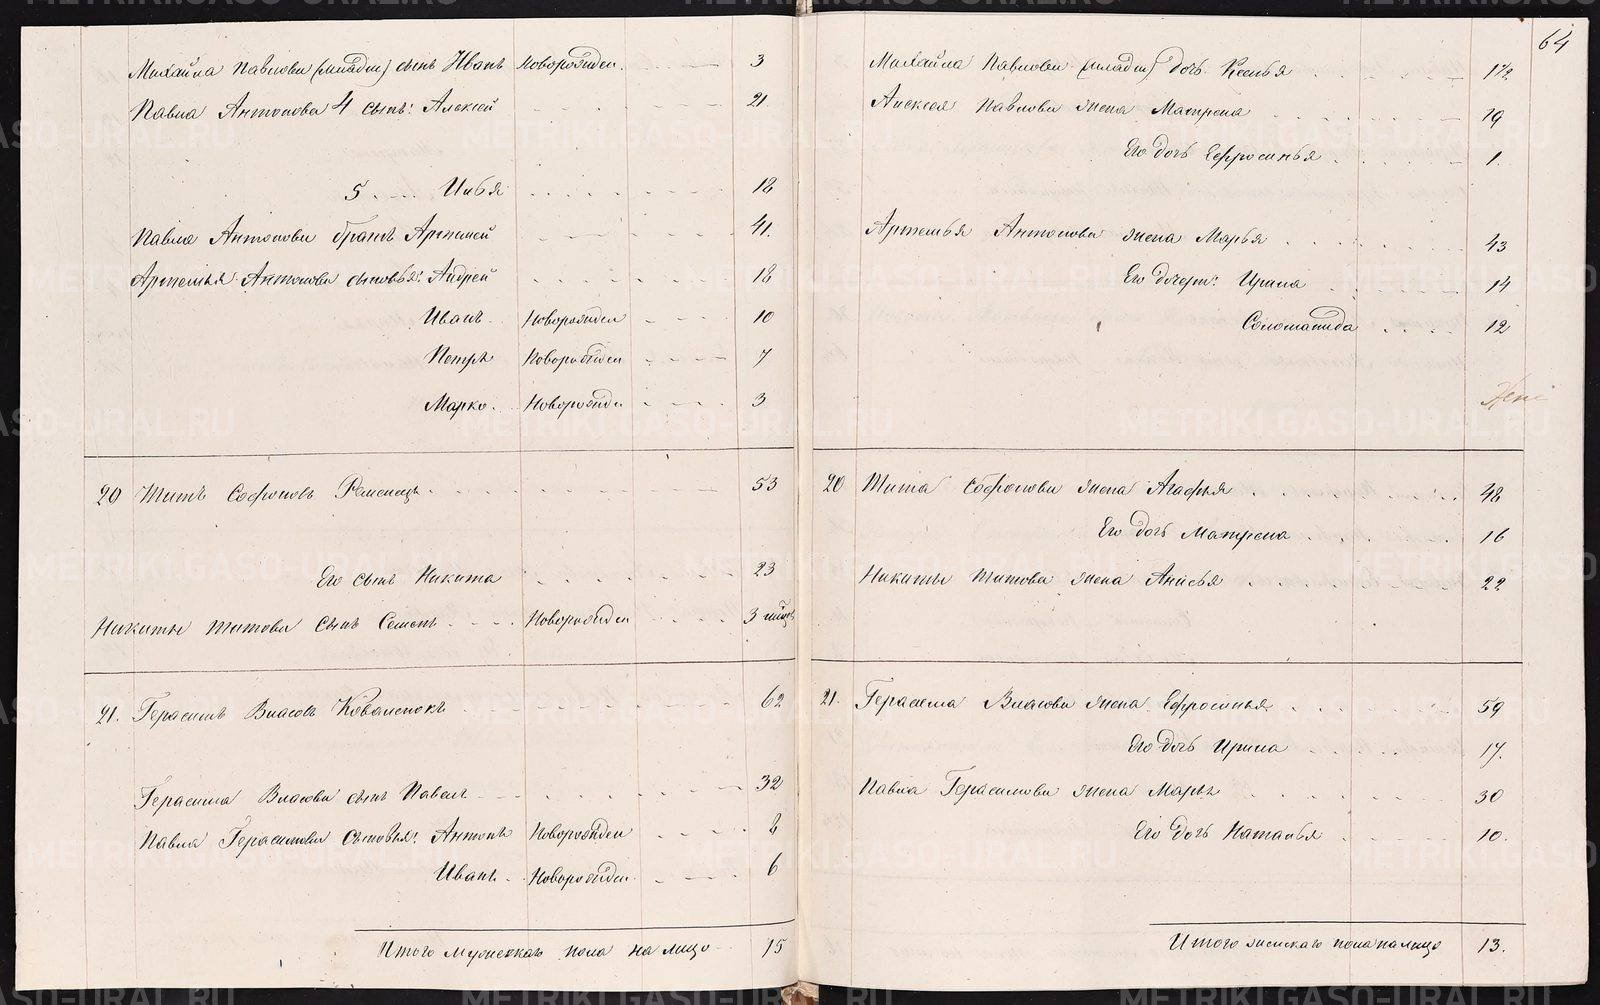 Михайла Павлова (младш) сынъ Иванъ новорожден. 3
Павла Антонова 4 сынъ: Алексей 21
5 Илья 18
Павла Антонова братъ Артемей 41.
Артемья Антонова сыновья: Андрей 18
Иванъ новорожден 10
Петръ новорожден 7
Марко. новорожден 3
20 Титъ Софоновъ 53
Его сынъ Никита 23
Никиты Титова сынъ Семенъ новорожден 3
21. Герасимъ Власовъ Коваленокъ 62
Герасима Власова сынъ Павелъ 32
Павла Герасимова сыновья: Антонъ новорожден 8
Иванъ новорожден 6
Итого мужескаго пола на лицо 15
64
Михайла Павлова (младш) дочь Ксенья 1/2
Алексея Павлова жена Матрена 19
Его дочь Ефросинья 1.
Артемья Антонова жена Марья 43
Его дочери: Ирина 14
Соломанида 12
20 Тита Софонова жена Агафья 48
Его дочь Матрена 16
Никиты Титова жена Анисья 22
21. Герасима Власова жена Ефросинья 59
Его дочь Ирина 17.
Павла Герасимова жена Марья 30
Его дочь Наталья 10.
Итого женскаго пола налицо 13.
METRIKI.GASO-URAL.RU